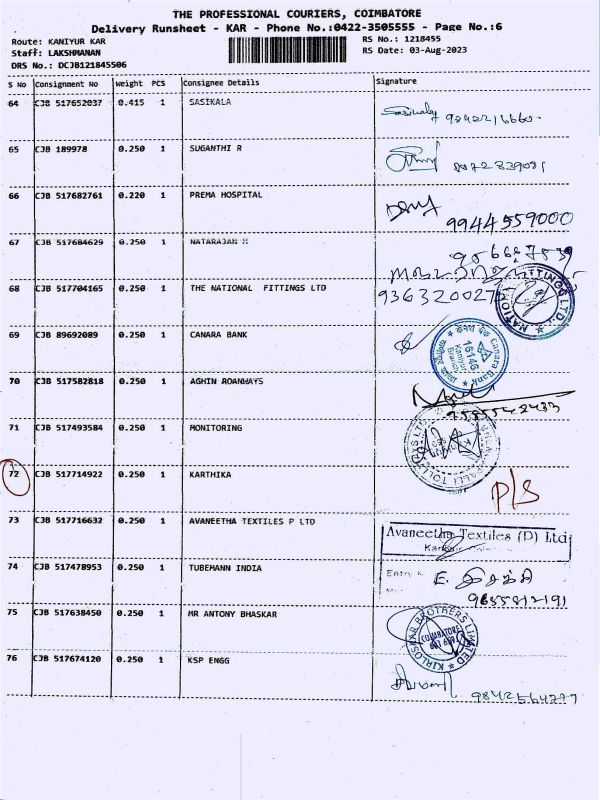 THE PROFESSIONAL COURIERS, COIMBATORE
Delivery Runsheet - KAR - Phone No.:0422-3505555 - Page No.:6
Route: KANIYUR KAR RS No.: 1218455
Staff: LAKSHMANAN RS Date: 03-Aug-2023
DRS No.: DCJB121845506
S No Consignment No Weight PCS Consignee Details Signature
64 CJB 517652037 0.415 1 SASIKALA
65 CJB 189978 0.250 1 SUGANTHI R
66 CJB 517682761 0.220 1 PREMA HOSPITAL
9944559000
67 CJB 517684629 0.250 1 NATARAJAN
68 CJB 517704165 0.250 1 THE NATIONAL FITTINGS LTD
69 CJB 89692089 0.250 1 CANARA BANK
Canara Bank
16146
Kaniyur
Branch
70 CJB 517582818 0.250 1 AGHIN ROANWAYS
9585542433
71 CJB 517493584 0.250 1 MONITORING
72 CJB 517714922 0.250 1 KARTHIKA
P/S
73 CJB 517716632 0.250 1 AVANEETHA TEXTILES P LTD
Avaneetha Textiles (P) Ltd
74 CJB 517478953 0.250 1 TUBEMANN INDIA
Entry
E.
9655812191
75 CJB 517638450 0.250 1 MR ANTONY BHASKAR
KIRLOSKAR BROTHERS LIMITED
COIMBATORE
76 CJB 517674120 0.250 1 KSP ENGG